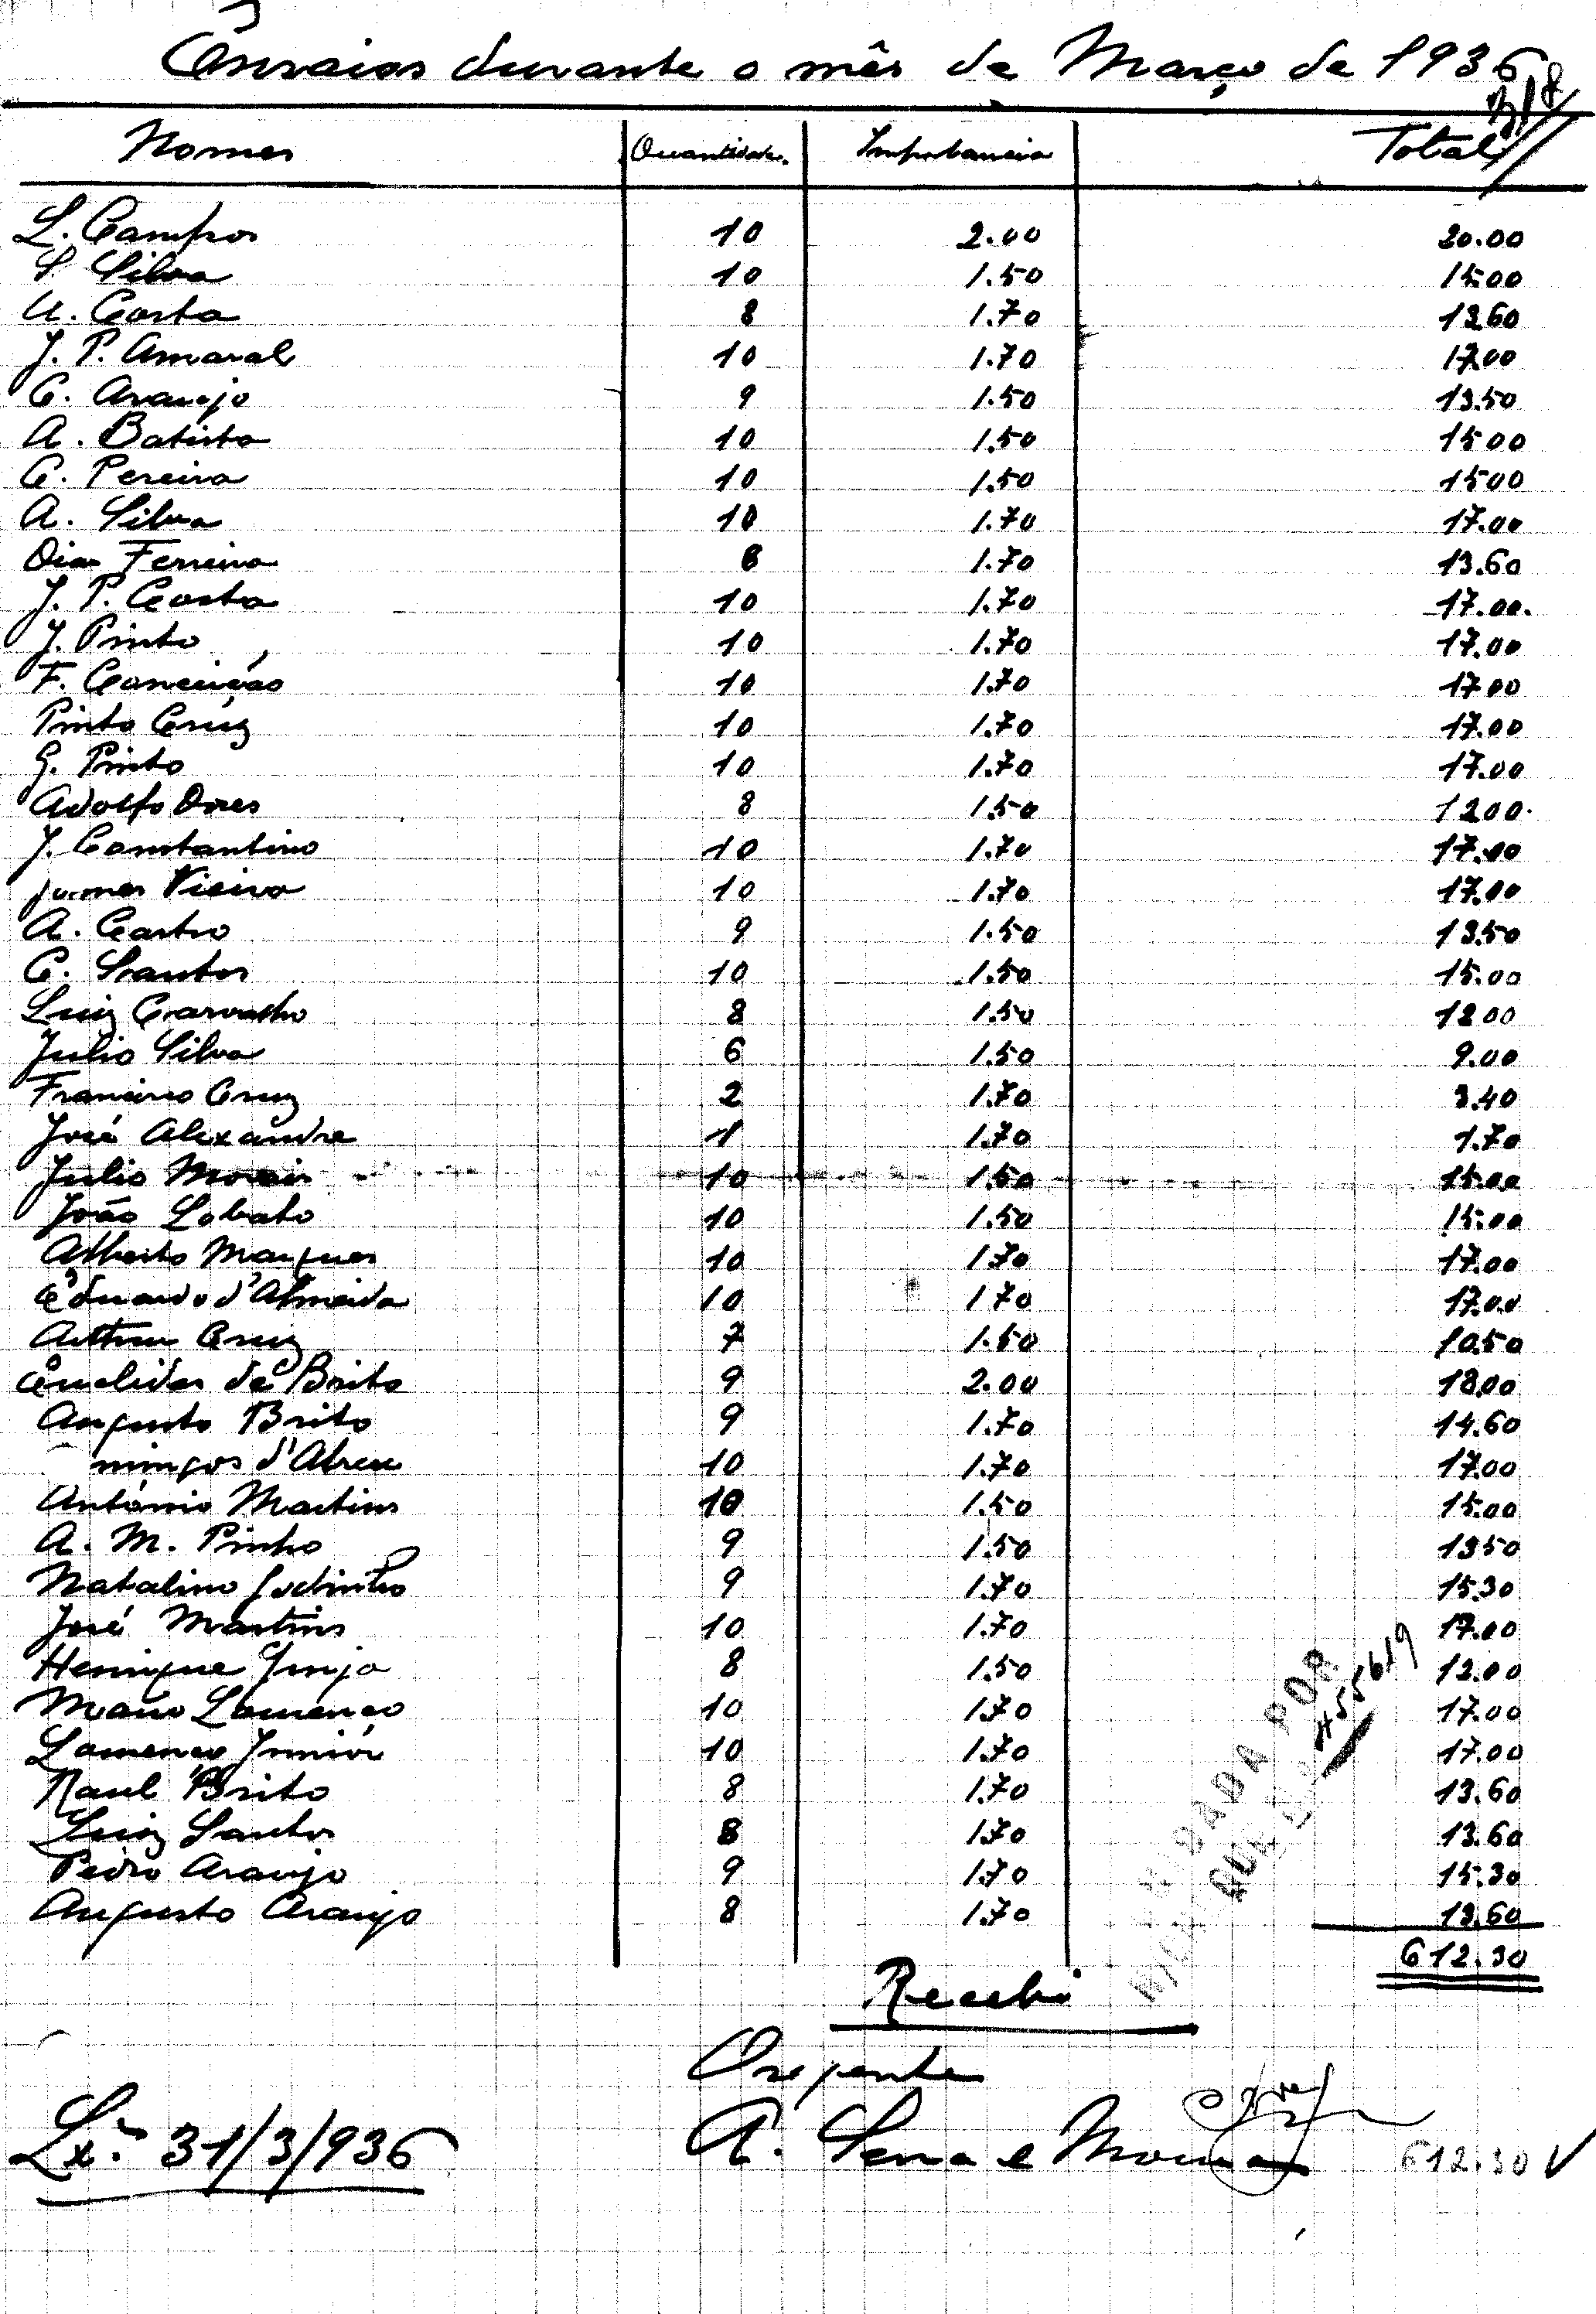 Ensaios durante o mês de Março de 1936
Nomes Quantidade Importancia Total
L. Campos 10 2.00 20.00
S Silva 10 1.50 15.00
A. Costa 8 1.70 13.60
J. P. Amaral 10 1.70 17.00
C. Araujo 9 1.50 13.50
A. Batista 10 1.50 15.00
C. Pereira 10 1.50 15.00
A. Silva 10 1.70 17.00
Dias Ferreira 8 1.70 13.60
J. P. Costa 10 1.70 17.00.
J. Pinto 10 1.70 17.00
F. Conceição 10 1.70 17.00
Pinto Cruz 10 1.70 17.00
G. Pinto 10 1.70 17.00
Adolfo Dores 8 1.50 12.00
J. Constantino 10 1.70 17.00
James Vieira 10 1.70 17.00
A. Castro 9 1.50 13.50
C. Santos 10 1.50 15.00
Luiz Carvalho 8 1.50 12.00
Julio Silva 6 1.50 9.00
Francisco Cruz 2 1.70 3.40
José Alexandre 1 1.70 1.70
Julio Morais 10 1.50 15.00
João Lobato 10 1.50 15.00
Alberto Marques 10 1.70 17.00
Eduardo d'Almeida 10 1.70 17.00
Arthur Cruz 7 1.50 10.50
Euclides de Brito 9 2.00 18.00
Augusto Brito 9 1.70 14.60
mingos d'Abreu 10 1.70 17.00
António Martins 10 1.50 15.00
A. M. Pinho 9 1.50 13.50
Natalino Godinho 9 1.70 15.30
José Martins 10 1.70 17.00
Henrique 8 1.50 12.00
Mario Lourenço 10 1.70 17.00
Lourenço Junior 10 1.70 17.00
Raul Brito 8 1.70 13.60
Luiz Santos 8 1.70 13.60
Pedro Araujo 9 1.70 15.30
Augusto Araujo 8 1.70 13.60
612.30
Recebi
O regente
Lx.ª 31/3/936
A. Serra e Moura
612.30